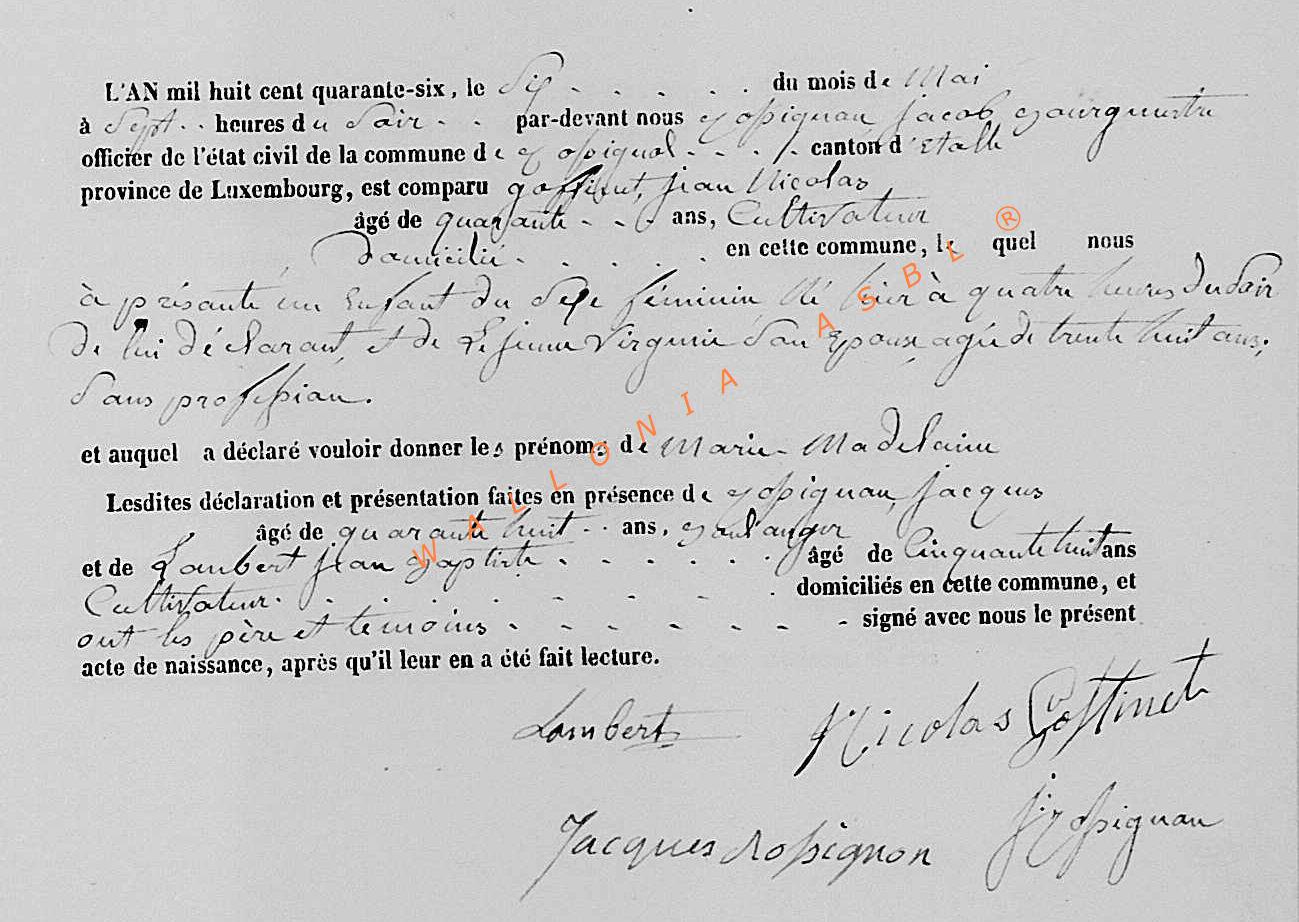 L'AN mil huit cent quarante-six, le Six . . . . . du mois de Mai
à Sept . . heures du Soir . . par-devant nous Rossignon Jacob Bourgmestre
officier de l'état civil de la commune de Rossignol . . . . canton d'Etalle
province de Luxembourg, est comparu goffinet, Jean Nicolas
âgé de quarante . . . ans, Cultivateur
Domicilié . . . . . en cette commune, lequel nous
à présanté un Enfant du Sexe féminin Né hier à quatre heures du Soir
de lui déclarant, et de Lejeune Virginie Son Epouse, agée de trente huit ans,
Sans profession.
et auquel a déclaré vouloir donner les prénoms de Marie Madelaine
Lesdites déclaration et présentation faites en présence de Rossignon, Jacques
âgé de quarante huit . . ans, Boulanger
et de Lambert Jean Baptiste . . . . . . âgé de Cinquante huit ans
Cultivateur . . . . . . . . . domiciliés en cette commune, et
ont les père et temoins . - - - - - - signé avec nous le présent
acte de naissance, après qu'il leur en a été fait lecture.
Lambert Nicolas Goffinet
Jacques Rossignon J Rossignon
WALLONIA ASBL ®